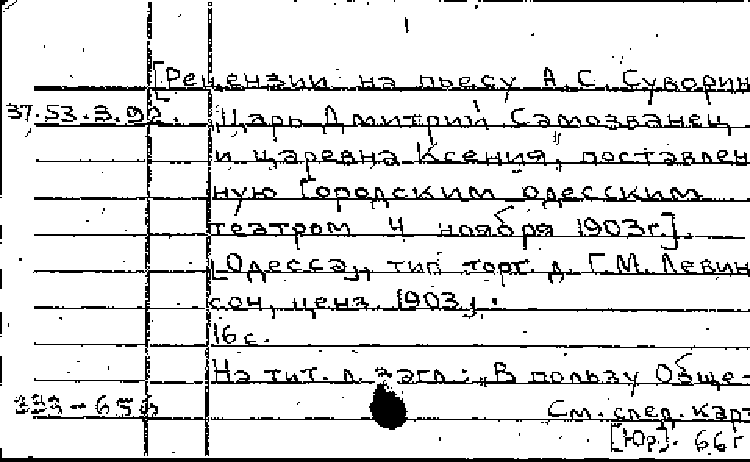 [Рецензии на пьесу А.С. Суворин
37.53.3.92. „Царь Дмитрий Самозванец
и царевна Ксения", поставлен-
ную Городским одесским
театром 4 ноября 1903г.].
[Одесса], тип торг. д. Г.М. Левин-
сон, ценз. 1903].
16 с.
На тит. л. загл.: „В пользу Обще-
333-656 См. след. карт
[Юр]. 66г